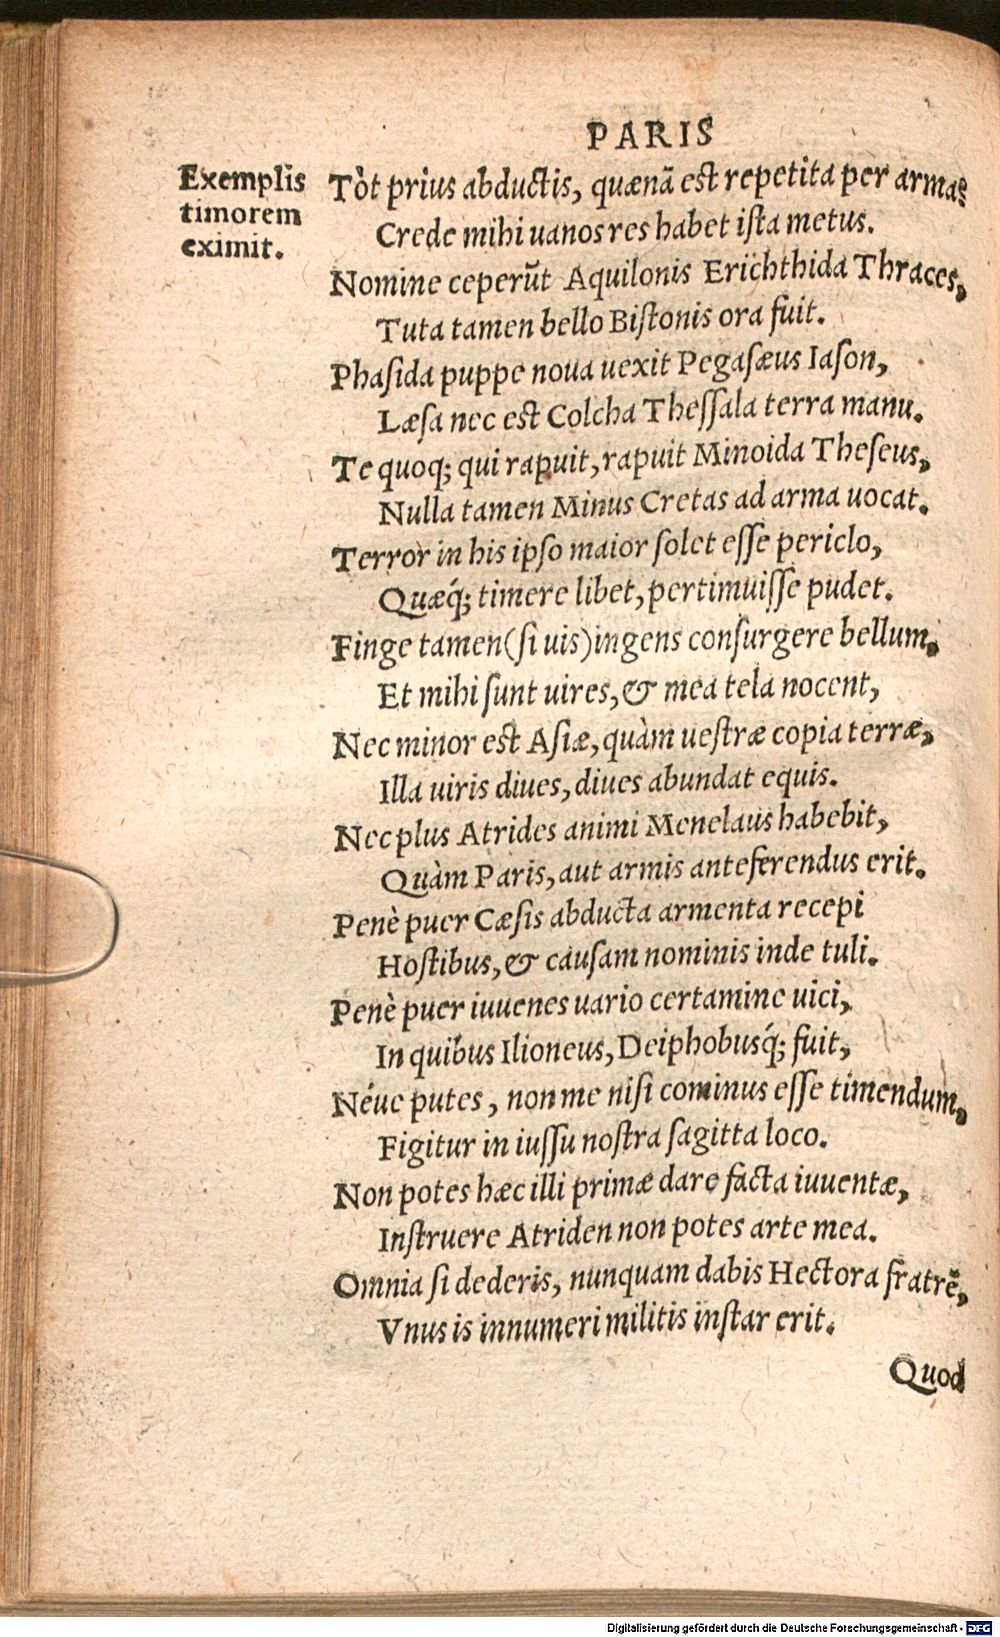 PARIS
Exemplis
timorem
eximit.
Tòt prius abductis, quænã est repetita per arma?
Crede mihi uanos res habet ista metus.
Nomine ceperũt Aquilonis Erichthida Thraces,
Tuta tamen bello Bistonis ora fuit.
Phasida puppe noua uexit Pegasæus Iason,
Læsa nec est Colcha Thessala terra manu.
Te quoq; qui rapuit, rapuit Minoida Theseus,
Nulla tamen Minus Cretas ad arma uocat.
Terror in his ipso maior solet esse periclo,
Quæq́; timere libet, pertimuisse pudet.
Finge tamen (si uis) ingens consurgere bellum,
Et mihi sunt uires, & mea tela nocent,
Nec minor est Asiæ, quàm uestræ copia terræ,
Illa uiris diues, diues abundat equis.
Nec plus Atrides animi Menelaus habebit,
Quàm Paris, aut armis anteferendus erit.
Penè puer Cæsis abducta armenta recepi
Hostibus, & causam nominis inde tuli.
Penè puer iuuenes uario certamine uici,
In quibus Ilioneus, Deiphobusq́; fuit,
Néue putes, non me nisi cominus esse timendum,
Figitur in iussu nostra sagitta loco.
Non potes hæc illi primæ dare facta iuuentæ,
Instruere Atriden non potes arte mea.
Omnia si dederis, nunquam dabis Hectora fratrẽ,
Vnus is innumeri militis instar erit.
Quod
Digitalisierung gefördert durch die Deutsche Forschungsgemeinschaft - DFG